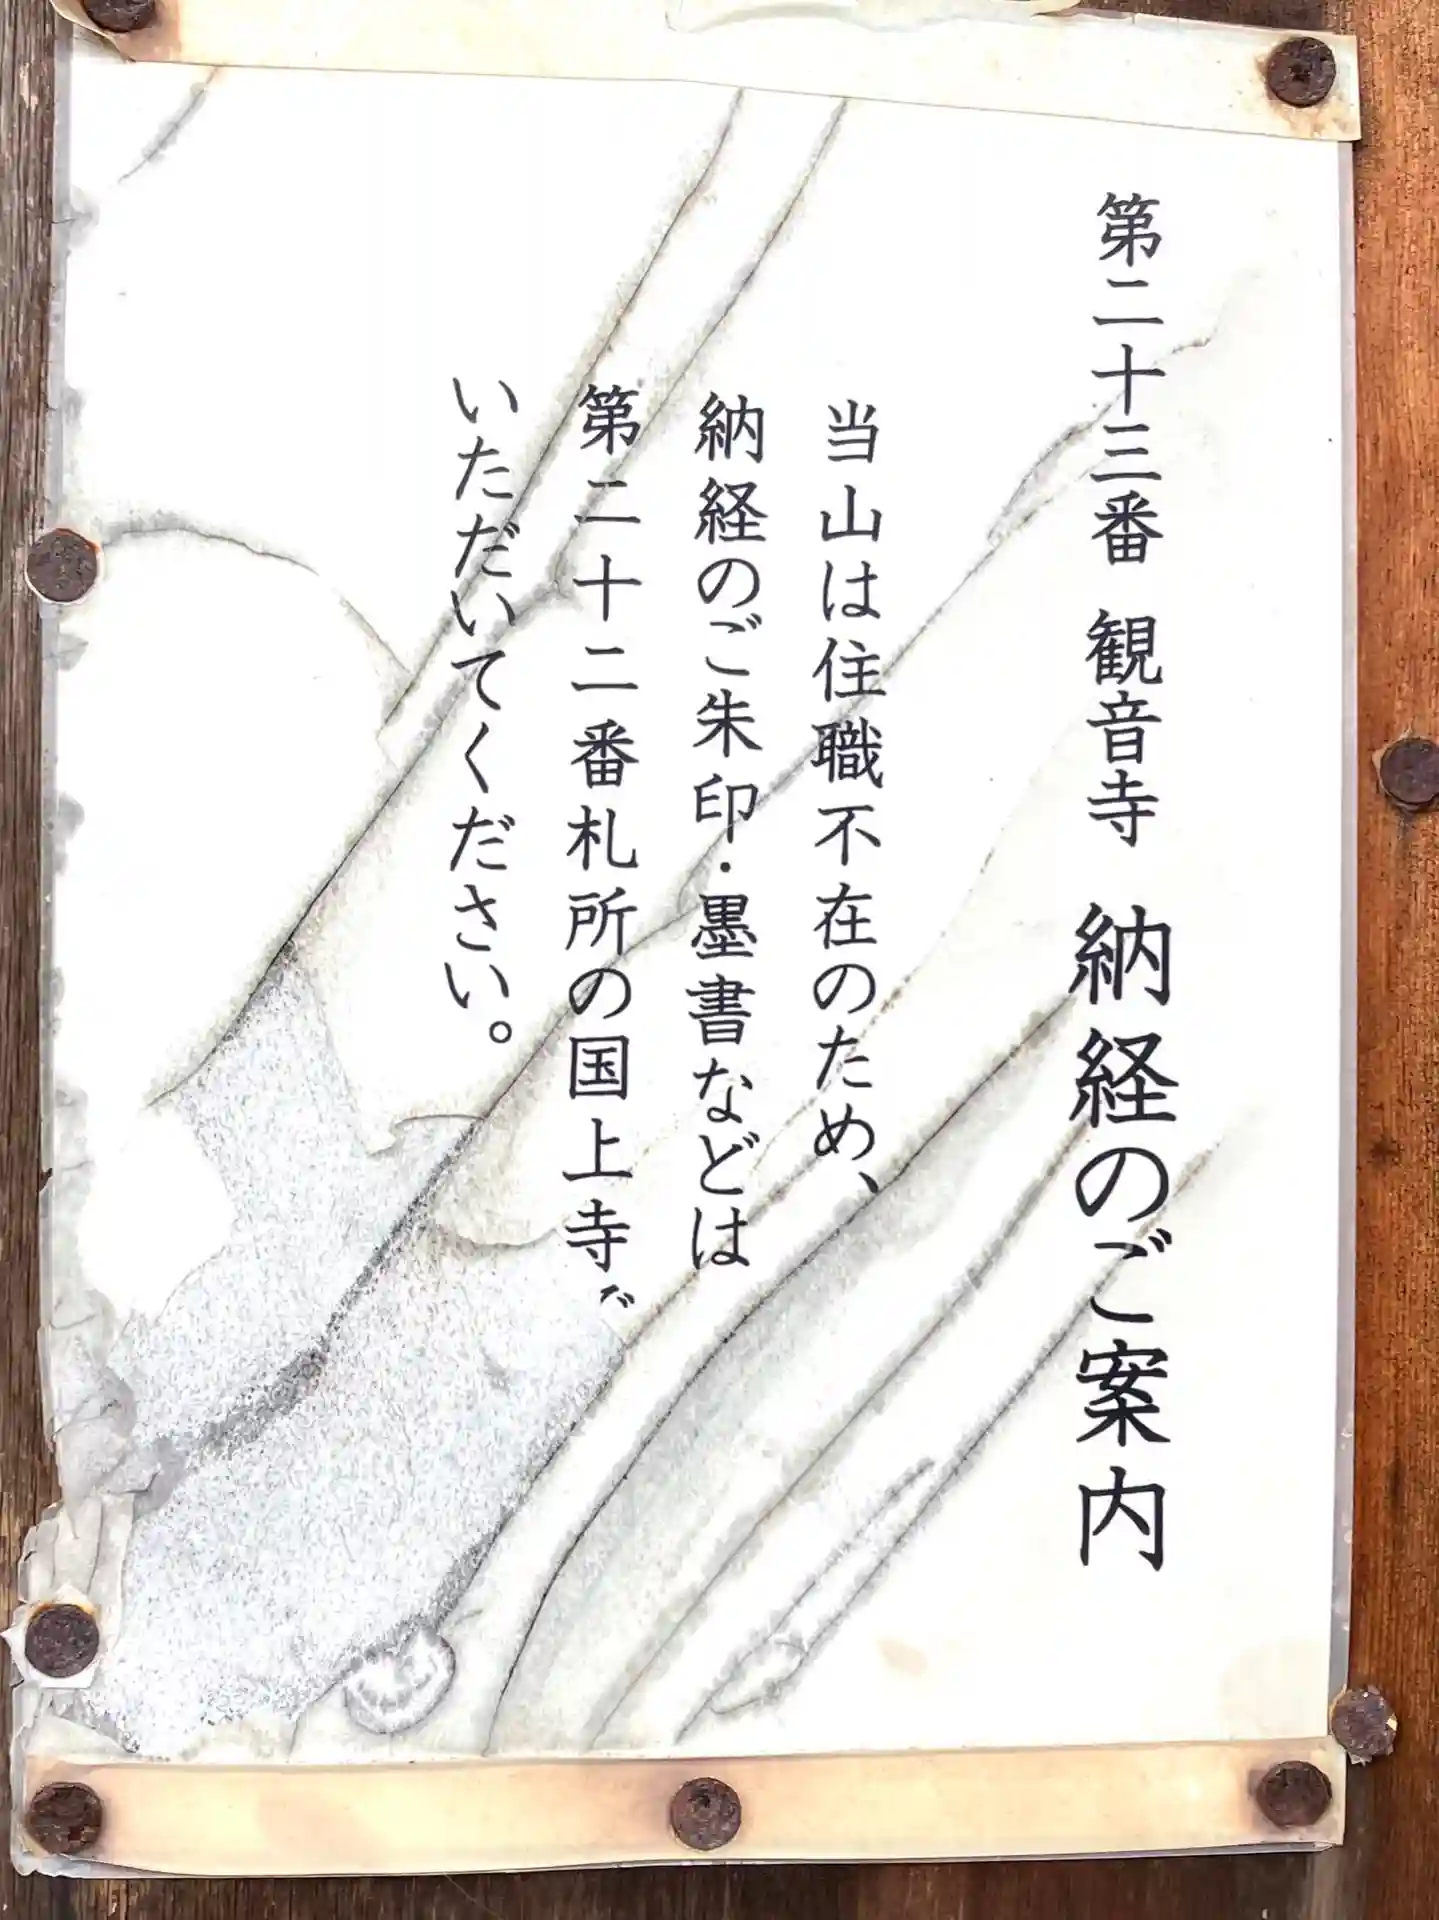 第二十三番 観音寺 納経のご案内
当山は住職不在のため、
納経のご朱印・墨書などは
第二十二番札所の国上寺
いただいてください。